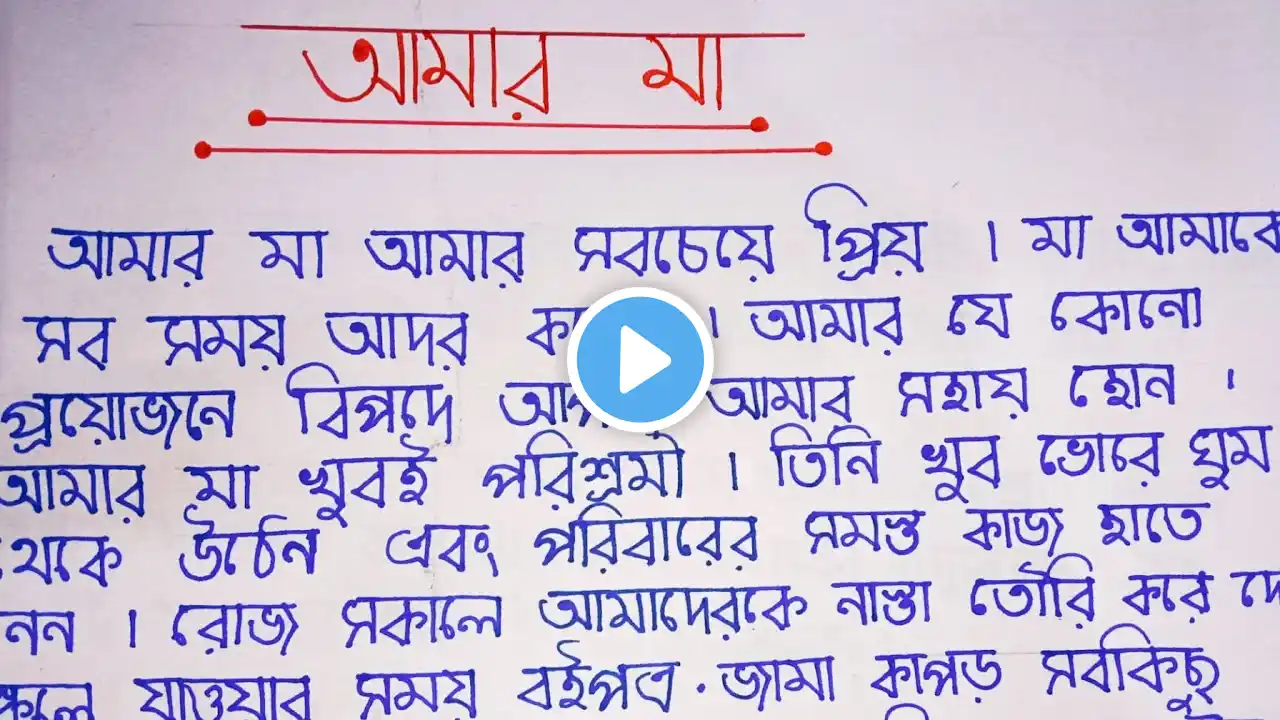 আমার মা
আমার মা আমার সবচেয়ে প্রিয় । মা আমাকে
সব সময় আদর । আমার যে কোনো
প্রয়োজনে বিপদে আমার সহায় হোন ।
আমার মা খুবই পরিশ্রমী । তিনি খুব ভোরে ঘুম
থেকে উঠেন এবং পরিবারের সমস্ত কাজ হাতে
নেন । রোজ সকালে আমাদেরকে নাস্তা তৈরি করে
যাওয়ার সময় বইপত্র . জামা কাপড় সবকিছু